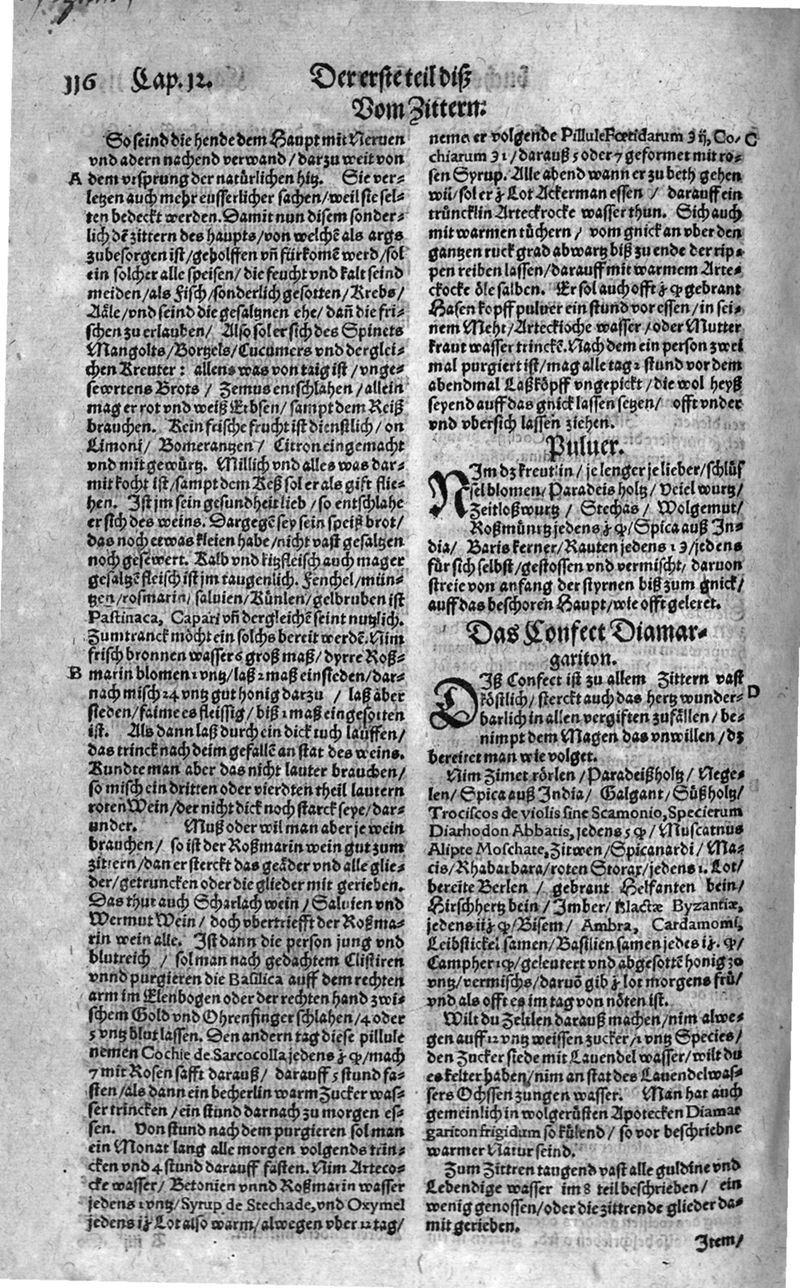 116 Cap. 12. Der erste teil diß
Vom Zittern:
So seind die hende dem Haupt mit Neruen
vnd adern nachend verwand/ darzu weit von
A dem vrsprung der natürlichen hitz. Sie ver-
letzen auch mehr eusserlicher sachen/ weil sie sel-
ten bedeckt werden. Damit nun disem sonder-
lich dē zittern des haupts/ von welchē als args
zubesorgen ist/ geholffen vñ fürkomē werd/ sol
ein solcher alle speisen/ die feucht vnd kalt seind
meiden/ als Fisch/ sonderlich gesotten/ Krebs/
Aäle/ vnd seind die gesaltznen ehe/ dañ die fri-
schen zu erlauben/ Also sol er sich des Spinets
Mangolts/ Bortzels/ Cucumers vnd derglei-
chen Kreuter: allens was von taig ist/ vnge-
sewrtens Brots/ Zemus entschlahen/ allein
mag er rot vnd weiß Erbsen/ sampt dem Reiß
brauchen. Kein frische frucht ist dienstlich/ on
Limoni/ Bomerantzen/ Citron eingemacht
vnd mit gewürtz. Millich vnd alles was dar-
mit kocht ist/ sampt dem Keß sol er als gifft flie-
hen. Ist jm sein gesundheit lieb/ so entschlahe
er sich des weins. Dargegē sey sein speiß brot/
das noch etwas kleien habe/ nicht vast gesaltzen
noch gesewert. Kalb vnd kitzfleisch auch mager
gesaltzē fleisch ist jm taugenlich. Fenchel/ mün-
tzen/ rosmarin/ saluien/ Künlen/ gelbruben ist
Pastinaca, Capari vñ dergleichē seint nutzlich.
Zum tranck möcht ein solchs bereit werdē. Nim
frisch bronnen wasser 6 groß maß/ dyrre Roß-
B marin blomen 1 vntz/ laß 2 maß einsieden/ dar-
nach misch 24 vntz gut honig darzu/ laß aber
sieden/ faime es fleissig/ biß 2 maß eingesotten
ist. Als dann laß durch ein dick tuch lauffen/
das trinck nach deim gefallē an stat des weins.
Kundte man aber das nicht lauter brauchen/
so misch ein dritten oder vierdten theil lautern
roten Wein/ der nicht dick noch starck seye/ dar-
under. Muß oder wil man aber je wein
brauchen/ so ist der Roßmarin wein gut zum
zittern/ dan er sterckt das geäder vnd alle glie-
der/ getruncken oder die glieder mit gerieben.
Das thut auch Scharlach wein/ Saluien vnd
Wermut Wein/ doch vbertrifft der Roßma-
rin wein alle. Ist dann die person jung vnd
blutreich/ sol man nach gedachtem Clistiren
vnnd purgieren die Basilica auff dem rechten
arm im Elenbogen oder der rechten hand zwi-
schem Gold vnd Ohrenfinger schlahen/ 4 oder
5 vntz blut lassen. Den andern tag diese pillule
nemen Cochie de Sarcocolla, jedens ʒ mach
7 mit Rosen safft darauß/ darauff 5 stund fa-
sten/ als dann ein becherlin warm Zucker was-
ser trincken/ ein stund darnach zu morgen es-
sen. Von stund nach dem purgieren sol man
ein Monat lang alle morgen volgends trin-
cken vnd 4 stund darauff fasten. Nim Arteco-
cke wasser/ Betonien vnnd Roßmarin wasser
jedens 1 vntz/ Syrup de Stechade, vnd Oxymel
jedens iȷ Lot also warm/ alwegen vber 12 tag/
neme er volgende Pillule Fœtidarum ℈ ij, Co- C
chiarum ℈ 1/ darauß 5 oder 7 geformet mit ro-
sen Syrup. Alle abend wann er zu beth gehen
wil/ sol er ȷ Lot Ackerman essen/ darauff ein
trüncklin Arteckrocke wasser thun. Sich auch
mit warmen tüchern/ vom gnick an vber den
gantzen ruck grad abwartz biß zu ende der rip-
pen reiben lassen/ darauff mit warmem Arte-
ckocke öle salben. Er sol auch offt ȷ gebrant
Hasen kopff puluer ein stund vor essen/ in sei-
nem Meht/ Arteckioche wasser/ oder Mutter
kraut wasser trinckē. Nach dem ein person zwei
mal purgiert ist/ mag alle tag 2 stund vor dem
abendmal Laßköpff vngepickt/ die wol heyß
seyend auff das gnick lassen setzen/ offt vnder
vnd vbersich lassen ziehen.
Puluer.
NIm dz kreutlin/ je lenger je lieber/ schlüs
selblomen/ Paradeis holtz/ Veiel wurtz/
Zeitloßwurtz/ Stechas/ Wolgemut/
Roßmüntz jedens ȷ/ Spica auß In-
dia/ Baris kerner/ Rauten jedens 1 ℈/ jedens
für sich selbst/ gestossen vnd vermischt/ daruon
streie von anfang der styrnen biß zum gnick/
auff das beschoren Haupt/ wie offt geleret.
Das Confect Diamar-
gariton.
DIß Confect ist zu allem Zittern vast
köstlich/ sterckt auch das hertz wunder- D
barlich in allen vergiften zufällen/ be-
nimpt dem Magen das vnwillen/ dz
bereitet man wie volget.
Nim Zimet rörlen/ Paradeißholtz/ Nege-
len/ Spica auß India/ Galgant/ Süßholtz/
Trociscos de violis sine Scamonio, Specierum
Diarhodon Abbatis, jedens 5/ Muscatnus
Alipte Moschate, Zitwen/ Spicanardi/ Ma-
cis/ Rhabarbara/ roten Storax/ jedens 1. Lot/
bereite Berlen/ gebrant Helfanten bein/
Hirschhertz bein/ Imber/ Blactæ Byzantiæ,
jedens ij/ Bisem/ Ambra, Cardamomi,
Leibstickel samen/ Basilien samen jedes iȷ./
Campher 1/ geleutert vnd abgesottē honig 20
vntz/ vermischs/ daruō gib ȷ lot morgens frü/
vnd als offt es im tag von nöten ist.
Wilt du Zeltlen darauß machen/ nim alwe-
gen auff 12 vntz weissen zucker/ 1 vntz Species/
den Zucker siede mit Lauendel wasser/ wilt du
es kelter haben/ nim an stat des Lauendelwas-
sers Ochssen zungen wasser. Man hat auch
gemeinlich in wolgerüsten Apotecken Diamar
gariton frigidum so külend/ so vor beschriebne
warmer Natur seind.
Zum Zittren taugend vast alle guldine vnd
Lebendige wasser im 8 teil beschrieben/ ein
wenig genossen/ oder die zittrende glieder da-
mit gerieben.
Item/